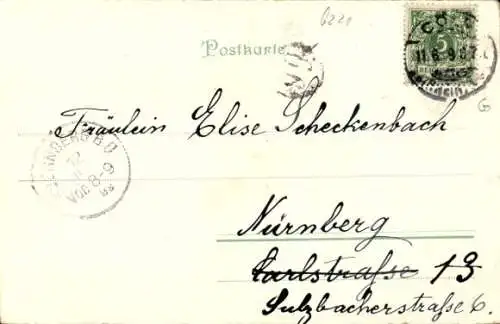 6221
Postkarte
CÖLN
11.6.98.7
5
G
Fräulein Elise Scheckenbach
NÜRNBERG B.O
12
Vor. 8-9
98
Nürnberg
Carlstraße 13
Sulzbacherstraße 6.